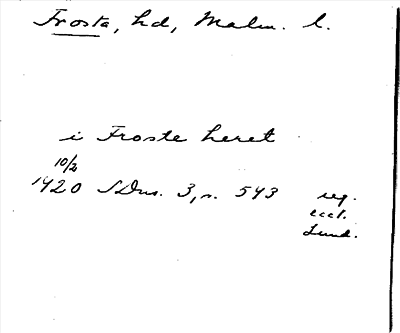 Frosta, hd, Malm. l.
i Froste heret
10/2
1420 SDns. 3, s. 543 reg.
eccl.
Lund.